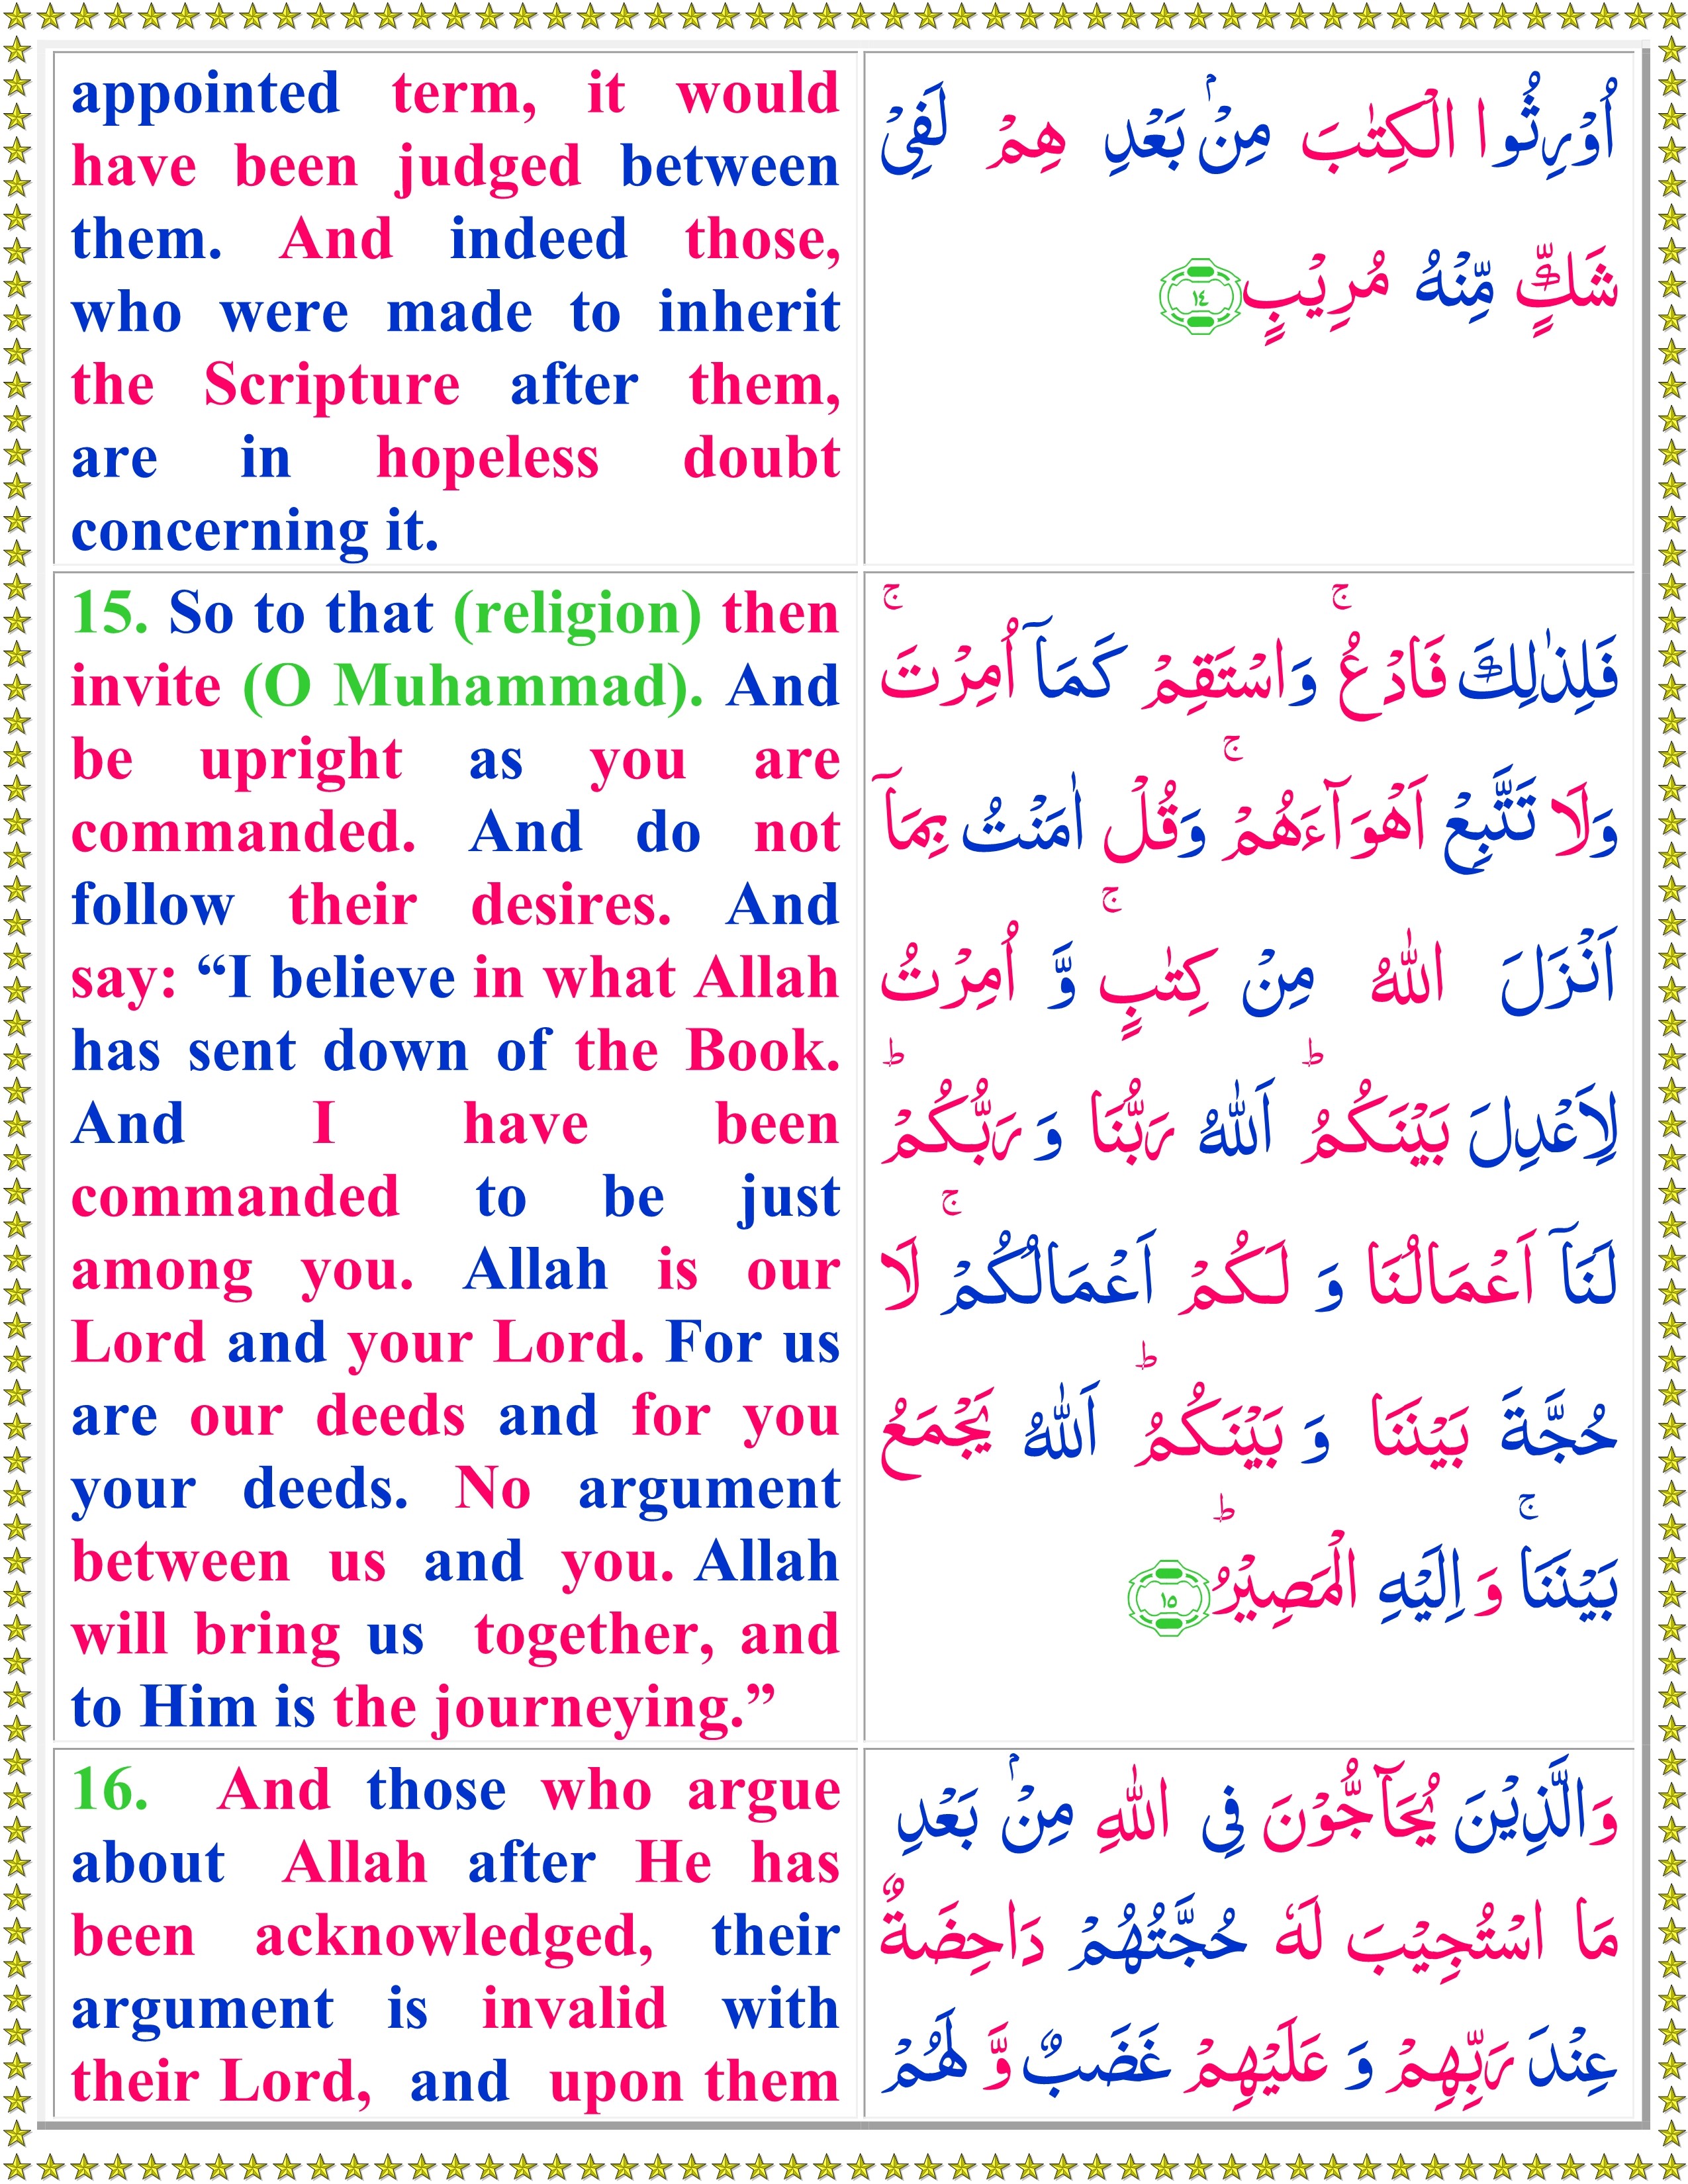 appointed term, it would
have been judged between
them. And indeed those,
who were made to inherit
the Scripture after them,
are in hopeless doubt
concerning it.
اُوْرِثُوا الْكِتٰبَ مِنْۢ بَعْدِ هِمْ لَفِىْ
شَكٍّ مِّنْهُ مُرِيْبٍ ١٤
15. So to that (religion) then
invite (O Muhammad). And
be upright as you are
commanded. And do not
follow their desires. And
say: “I believe in what Allah
has sent down of the Book.
And I have been
commanded to be just
among you. Allah is our
Lord and your Lord. For us
are our deeds and for you
your deeds. No argument
between us and you. Allah
will bring us together, and
to Him is the journeying.”
فَلِذٰلِكَ فَادْعُ ۚ وَاسْتَقِمْ كَمَاۤ اُمِرْتَ ۚ
وَلَا تَتَّبِعْ اَهْوَآءَهُمْ ۚ وَقُلْ اٰمَنْتُ بِمَاۤ
اَنْزَلَ اللّٰهُ مِنْ كِتٰبٍ ۚ وَّ اُمِرْتُ
لِاَعْدِلَ بَيْنَكُمُ ؕ اَللّٰهُ رَبُّنَا وَ رَبُّكُمْ ؕ
لَنَاۤ اَعْمَالُنَا وَ لَـكُمْ اَعْمَالُكُمْ ۚ لَا
حُجَّةَ بَيْنَنَا وَ بَيْنَكُمُ ؕ اَللّٰهُ يَجْمَعُ
بَيْنَنَا ۚ وَ اِلَيْهِ الْمَصِيْرُ ؕ ١٥
16. And those who argue
about Allah after He has
been acknowledged, their
argument is invalid with
their Lord, and upon them
وَالَّذِيْنَ يُحَآجُّوْنَ فِى اللّٰهِ مِنْۢ بَعْدِ
مَا اسْتُجِيْبَ لَهٗ حُجَّتُهُمْ دَاحِضَةٌ
عِنْدَ رَبِّهِمْ وَ عَلَيْهِمْ غَضَبٌ وَّ لَهُمْ